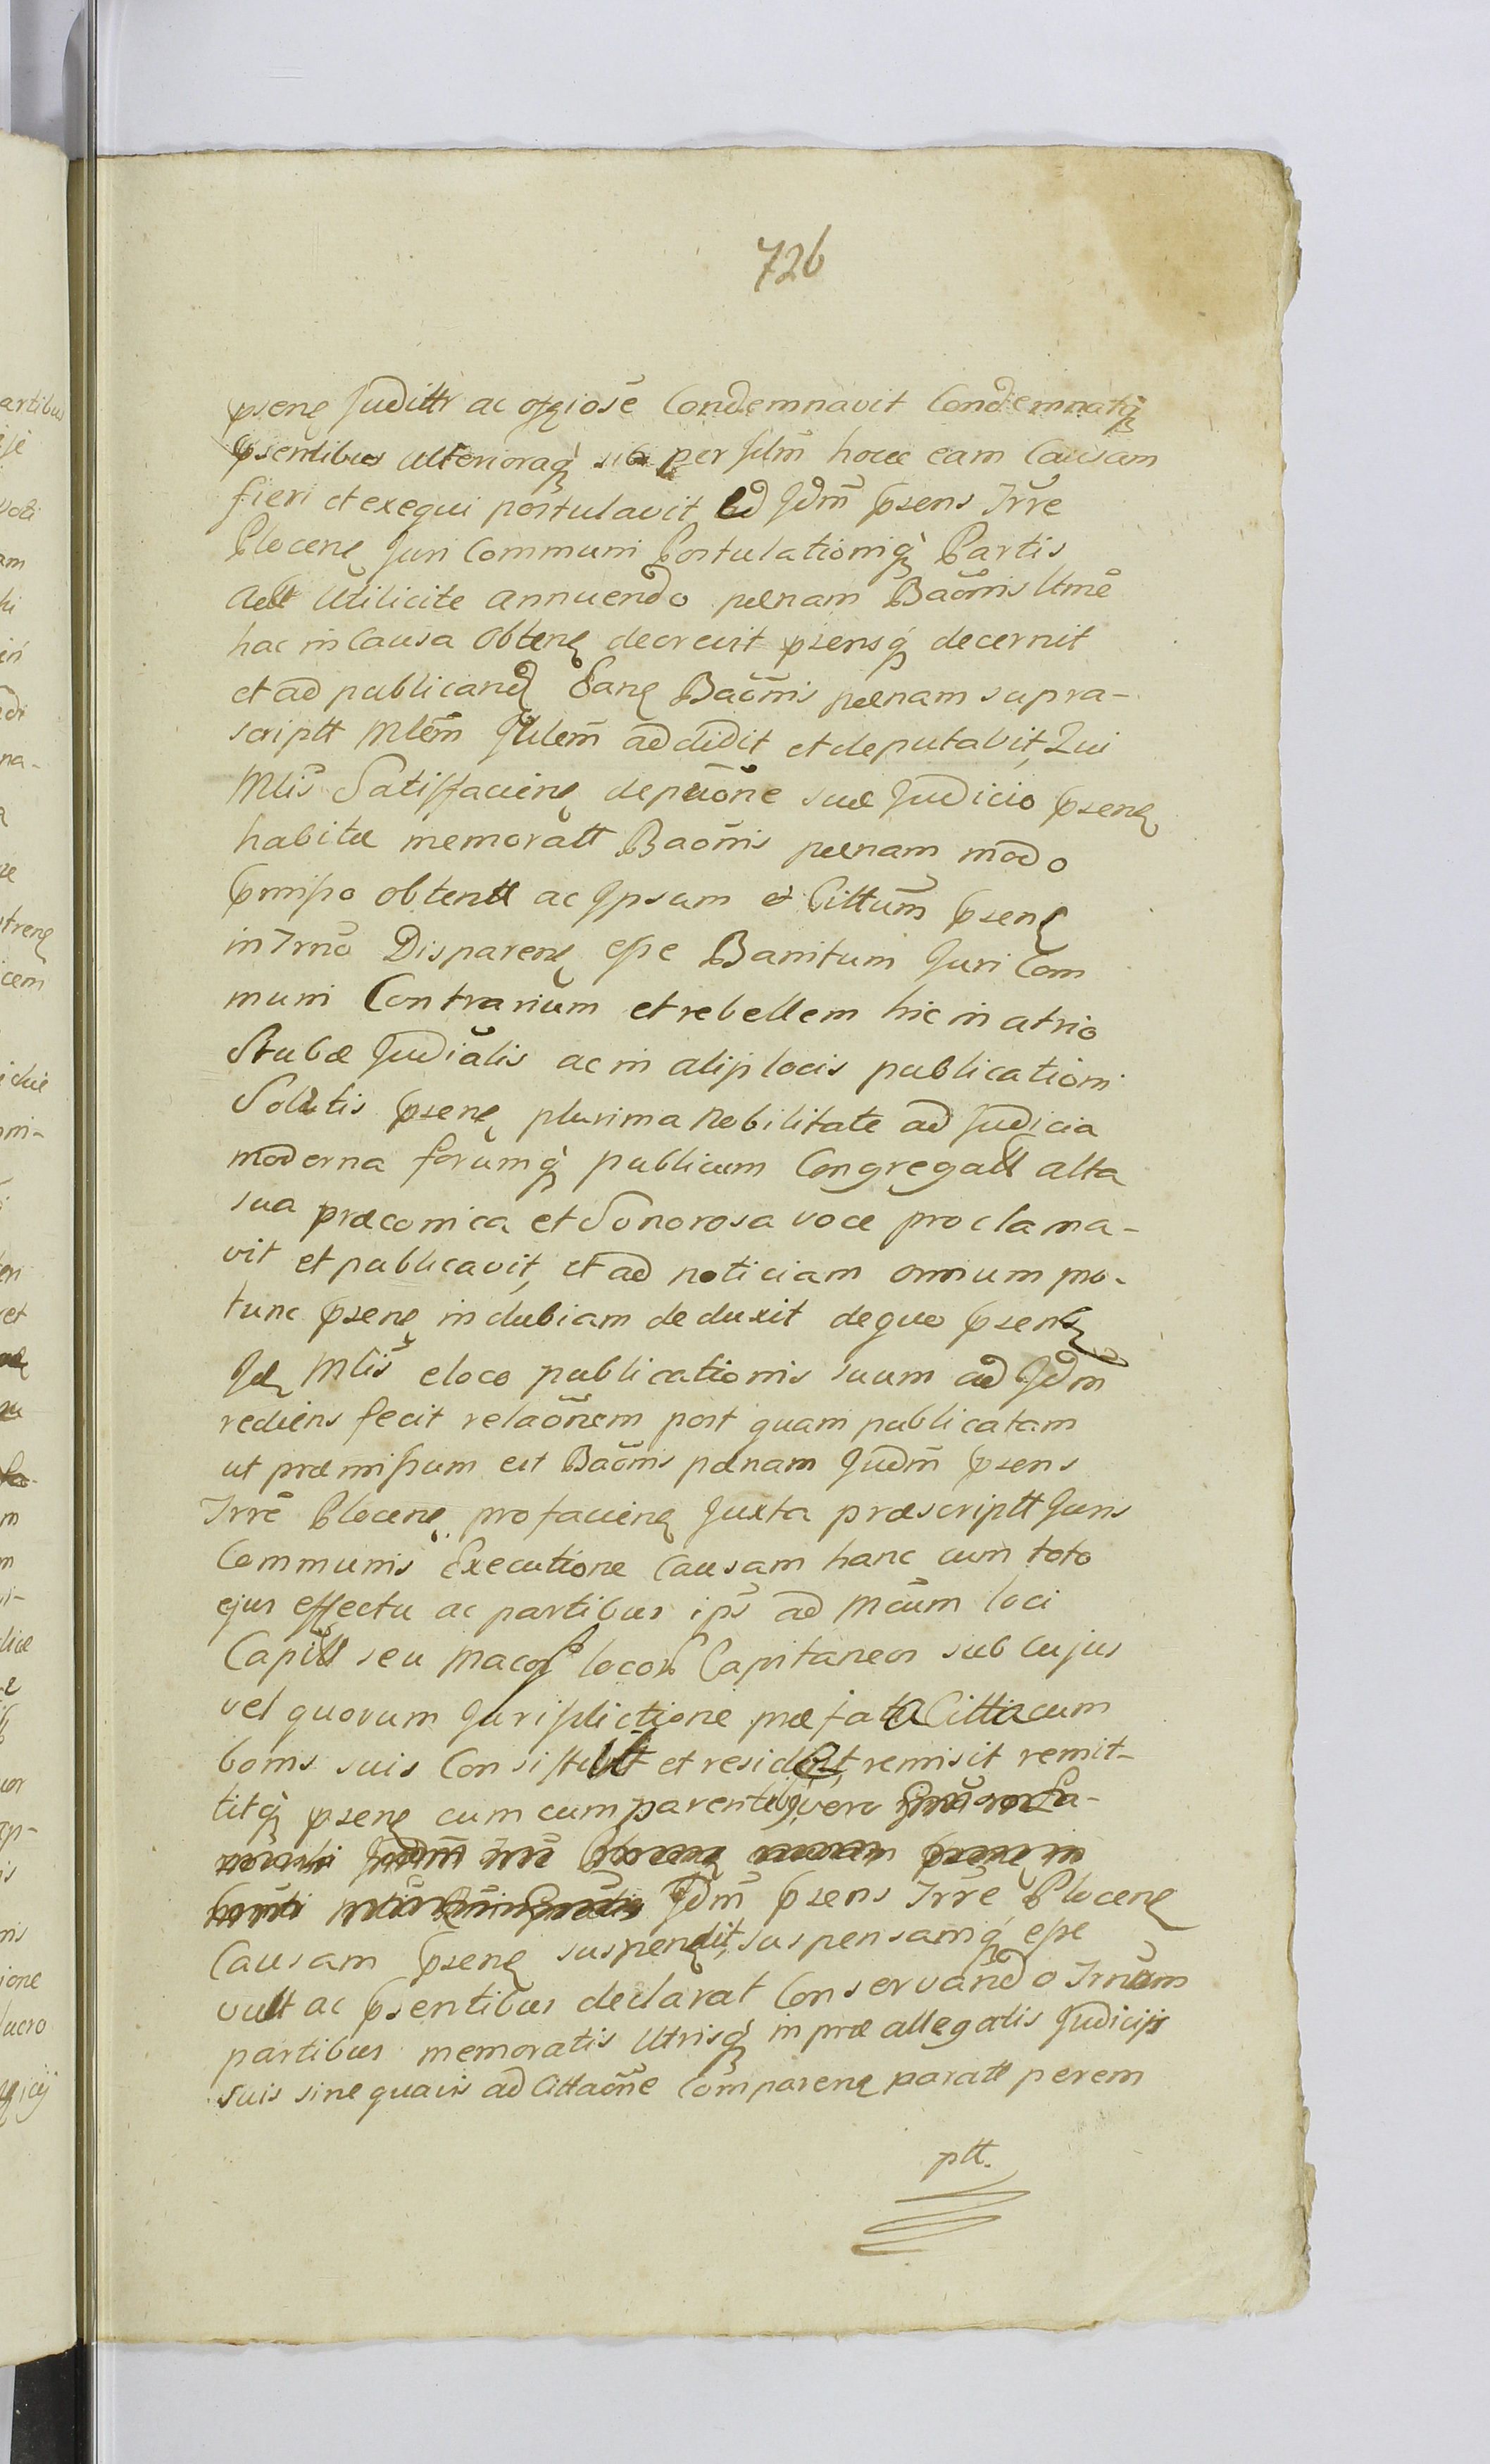 726
psenę Judittr ac offiose Condemnavit Condemnatq
psentibus Ulterioraq sibi per hocce eam Causam
fieri et exequi postulavit Jdm psens Trre
Plocenę Juri Communi Postulationiq Partis
Utilicite annuendo pænam Baōnis Utme
hac in Causa Obtenę decrevit psensq decernit
et ad publicand Eanę Baōnis pænam supra-
scriptt Mlem Jdlem addidit et deputavit, Qui
Mlis Satisfaciena depuōne suæ Judicio psenę
habita memoratt Baōnis pænam modo
pmisso obtentt ac Ipsum et Cittum psenę
in Trno Disparenę esse Banitum Juri Com
muni Contrarium et rebellem hic in atrio
Stubæ Judialis ac in alijs locis publicationi
Solitis psenę plurima Nobilitate ad Judicia
moderna forumq publicum Congregatt alta
sua præconica et Sonorosa voce proclama-
vit et publicavit, et ad noticiam omnium pro-
tunc psenę indubiam deduxit de quo psenę
Jdę Mlis e loco publicationis suum ad Jdm
rediens fecit relaōnem post quam publicatam
ut præmissum est Baōnis pænam Judm psens
Trre Plocenę pro faciena Juxta præscriptt Juris
Communis Executione Causam hanc cum toto
ejus effectu ac partibus ips ad Mcum loci
Capitt seu Macos locor Capitaneos sub cujus
vel quorum Jurisdictione præfata Citta cum
bonis suis Consistit et residet, remisit remit-
titq psenę cum cum parentibq vero
Jdm psens Trre Plocenę
Causam psenę suspendit, suspensamq esse
vult ac psentibus declarat Conservando Trnum
partibus memoratis Utrisq in præallegatis Judicijs
suis sine quavis ad Cittaōne Comparenę paratt perem
ptt.